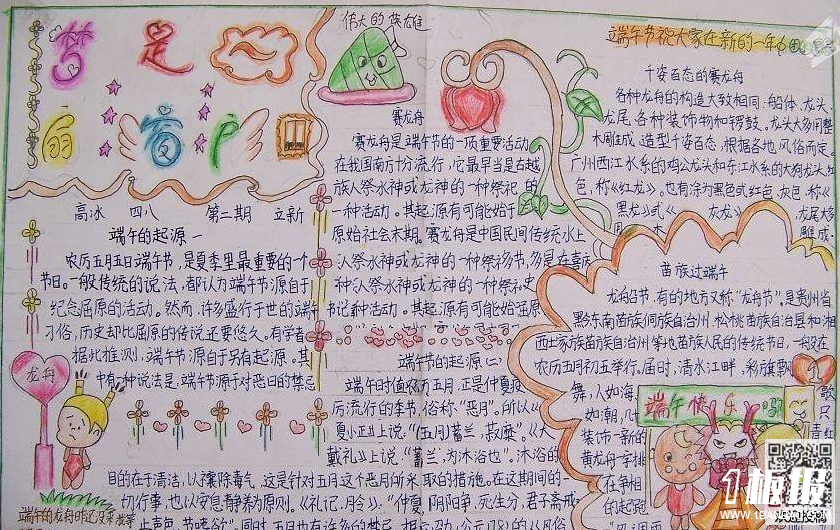 梦是
扇窗户
高冰 四八 第二期 立新
端午的起源一
农历五月五日端午节，是夏季里最重要的一个
节日。一般传统的说法，都认为端午节源自于
纪念屈原的活动。然而，许多盛行于世的端午
习俗，历史却比屈原的传说还要悠久。有学者
据此推测，端午节源自另有起源。其
中有一种说法是：端午节源于对恶日的禁忌
龙舟
伟大的英雄
赛龙舟
赛龙舟是端午节的一项重要活动
在我国南方十分流行，它最早当是古越
族人祭水神或龙神的一种祭祀的
一种活动。其起源有可能始于
原始社会末期。赛龙舟是中国民间传统水上
人祭水神或龙神的一种祭
种
其起源有可能始至原
端午节的起源(二)
端午时值农历五月，正是仲夏疫
厉流行的季节，俗称“恶月”。所以《
夏小正》上说：“(五月)蓄兰，菽糜。”《大
戴礼》上说：“蓄兰，为沐浴也”。沐浴的
目的在于清洁，以禳除毒气，这是针对五月这个恶月所采取的措施。在这期间的一
切行事，也以安息静养为原则。《礼记·月令》：“仲夏，阴阳争，死生分，君子斋戒
止声色，节嗜欲”。同时，五月也有许多的禁忌
端午节祝大家在新的一年
千姿百态的赛龙舟
各种龙舟的构造大致相同：船体、龙头、
龙尾、各种装饰物和锣鼓。龙头大多用整
木雕成，造型千姿百态，根据各地风俗而定。
广州西江水系的鸡公龙头和东江水系的大狗龙头，红
色，称《红龙》，也有涂为黑色或红色、灰色，称《
黑龙》或《灰龙》
龙尾大
雕成
苗族过端午
龙船节，有的地方又称“龙舟节”。是贵州省
黔东南苗族侗族自治州、松桃苗族自治县和湘
西土家族苗族自治州等地苗族人民的传统节日，一般在
农历五月初五举行。届时，清水江畔，彩旗飘
舞，人如海，歌
如潮，几只
装饰一新的青红
黄龙舟一字排
在争相
的起跑
端午快乐
1板报
WWW.1BANBAO.COM